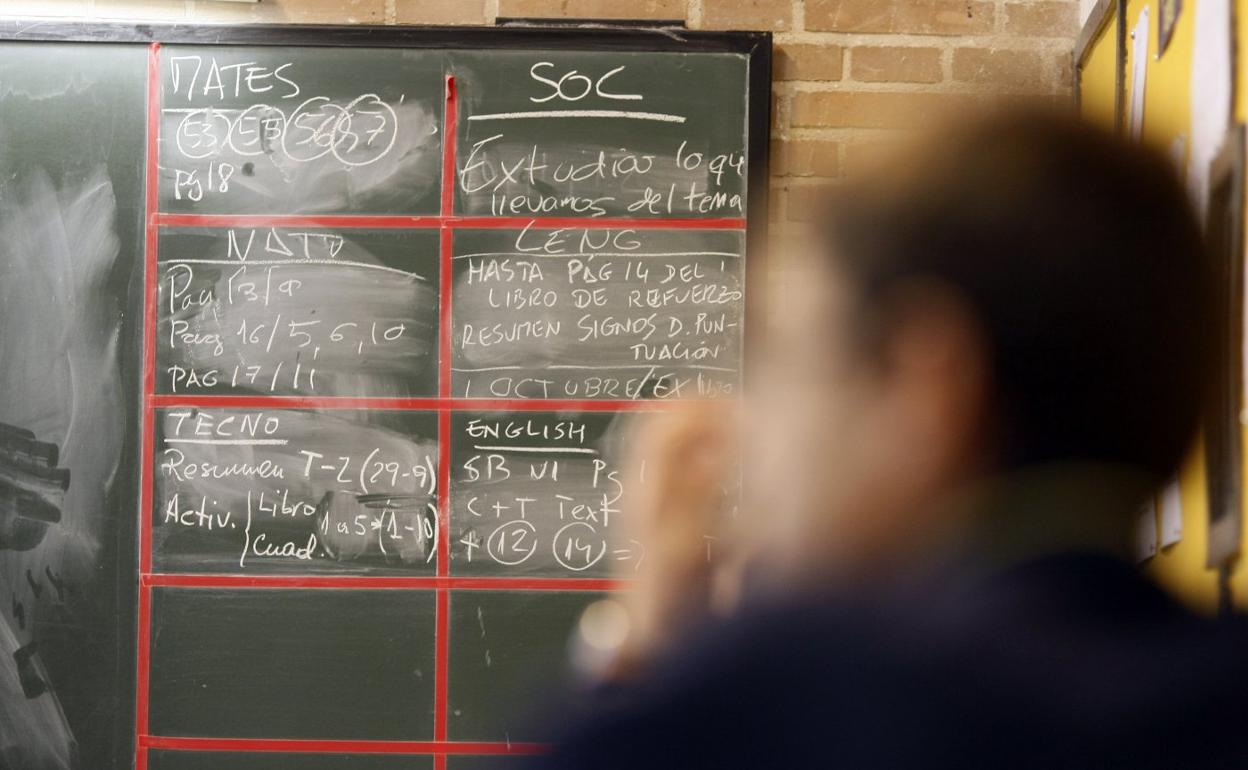 MATES
53 55 56 57
pg 18
SOC
Extudiar lo que
llevamos del tema
NATU
Pag 13/9
Pag 16/5, 6, 10
PAG 17/11
LENG
HASTA PÁG 14 DEL
LIBRO DE REFUERZO
RESUMEN SIGNOS D. PUN-
TUACIÓN
1 OCTUBRE/EX libro
TECNO
Resumen T-2 (29-9)
Activ. Libro 1 a 5 (1-10)
Cuad.
ENGLISH
SB U1 Pg
C + T Text
+ 12 14 =>